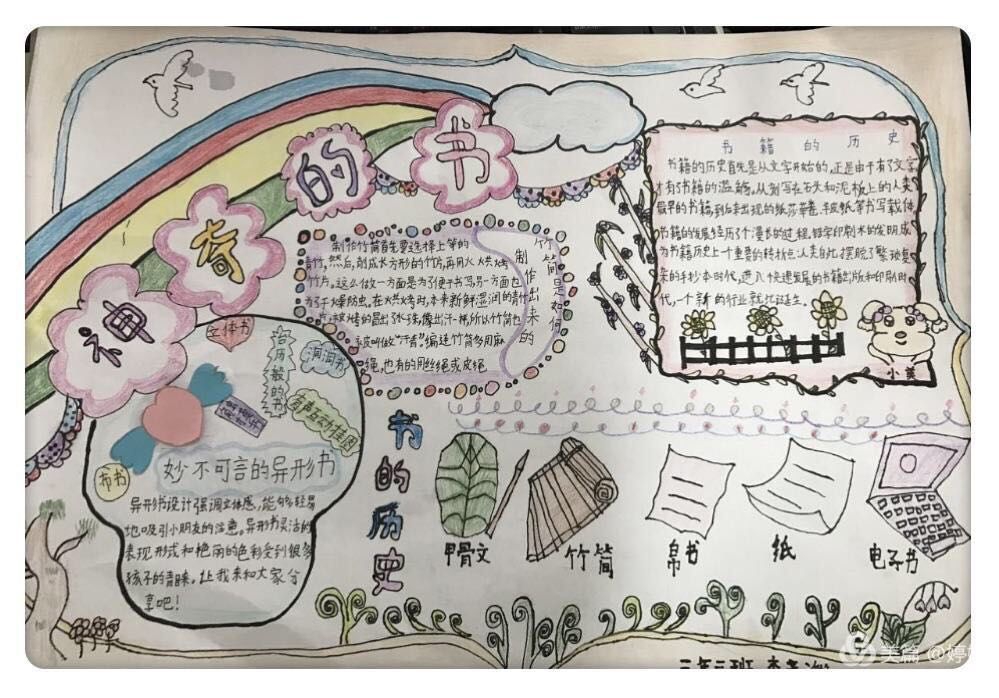 神奇的书
书籍的历史
书籍的历史首先是从文字开始的,正是由于有了文字
才有了书籍的滥觞。从刻写在石头和泥板上的人类
最早的书籍,到后来出现的纸莎草卷、羊皮纸等书写载体
书籍的发展经历了个漫长的过程,
为书籍历史上一个重要的转折点:人类自此摆脱了繁琐复
杂的手抄本时代,进入快速发展的书籍出版和印刷时
代,一个新的行业就此诞生。
小美
竹简是如何
制作出来的
制作竹简首先要选择上等的
青竹,然后,削成长方形的竹片,再用火烘烤
竹片。这么做一方面是为了便于书写另一方面也
为了干燥防虫。在火烘烤时,本来新鲜湿润的青竹
片,被烤的冒出水珠,像出汗一样,所以竹简也
被叫做“汗青”。编连竹简多用麻
绳,也有的用丝绳或皮绳。
立体书
台历般的书
洞洞书
有声互动挂图
布书
妙不可言的异形书
异形书设计强调立体感,能够轻易
地吸引小朋友的注意。异形书灵活的
表现形式和艳丽的色彩受到很多
孩子的青睐。让我来和大家分
享吧!
书的历史
甲骨文
竹简
帛书
纸
电子书
美篇 @婷